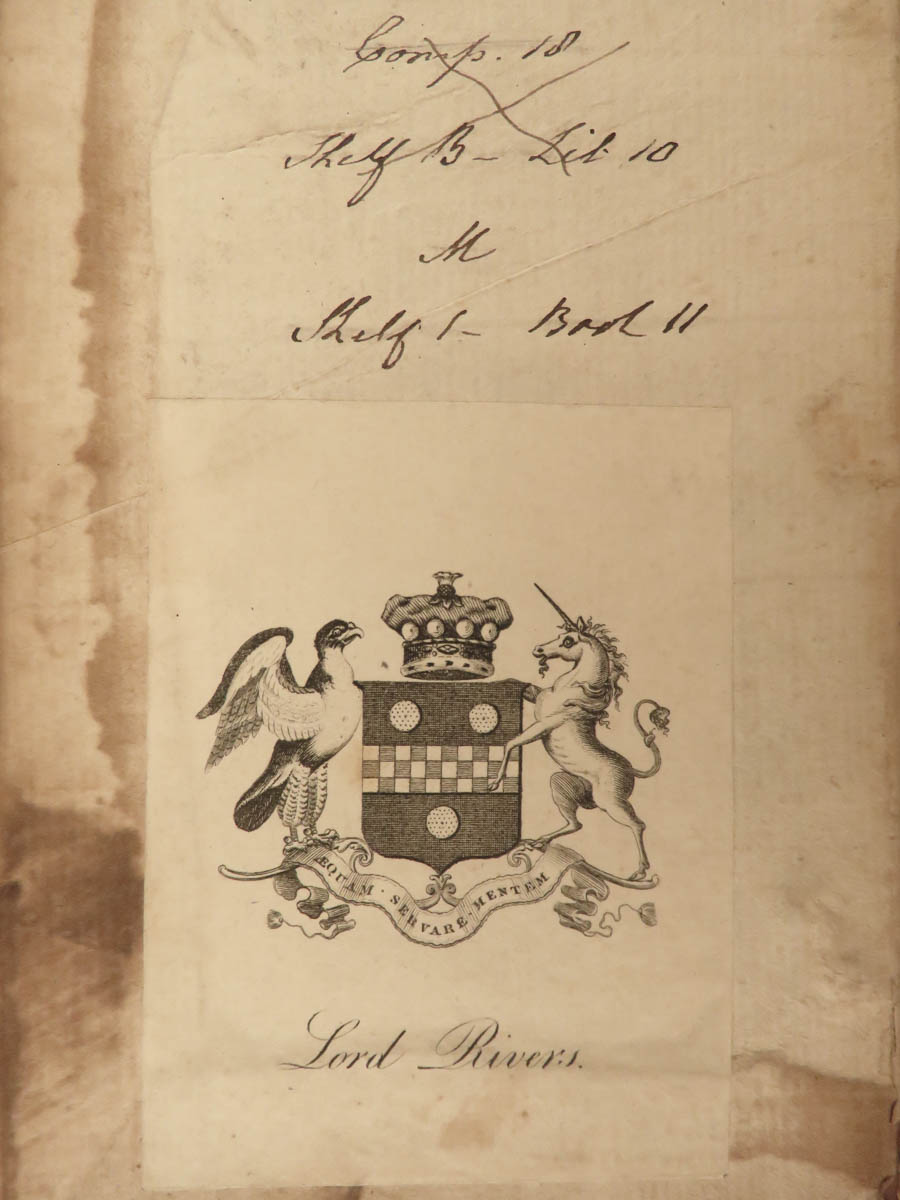 Comp. 18
Shelf B - Lib 10
M
Shelf 1 - Book 11
ÆQUAM · SERVARE · MENTEM
Lord Rivers.